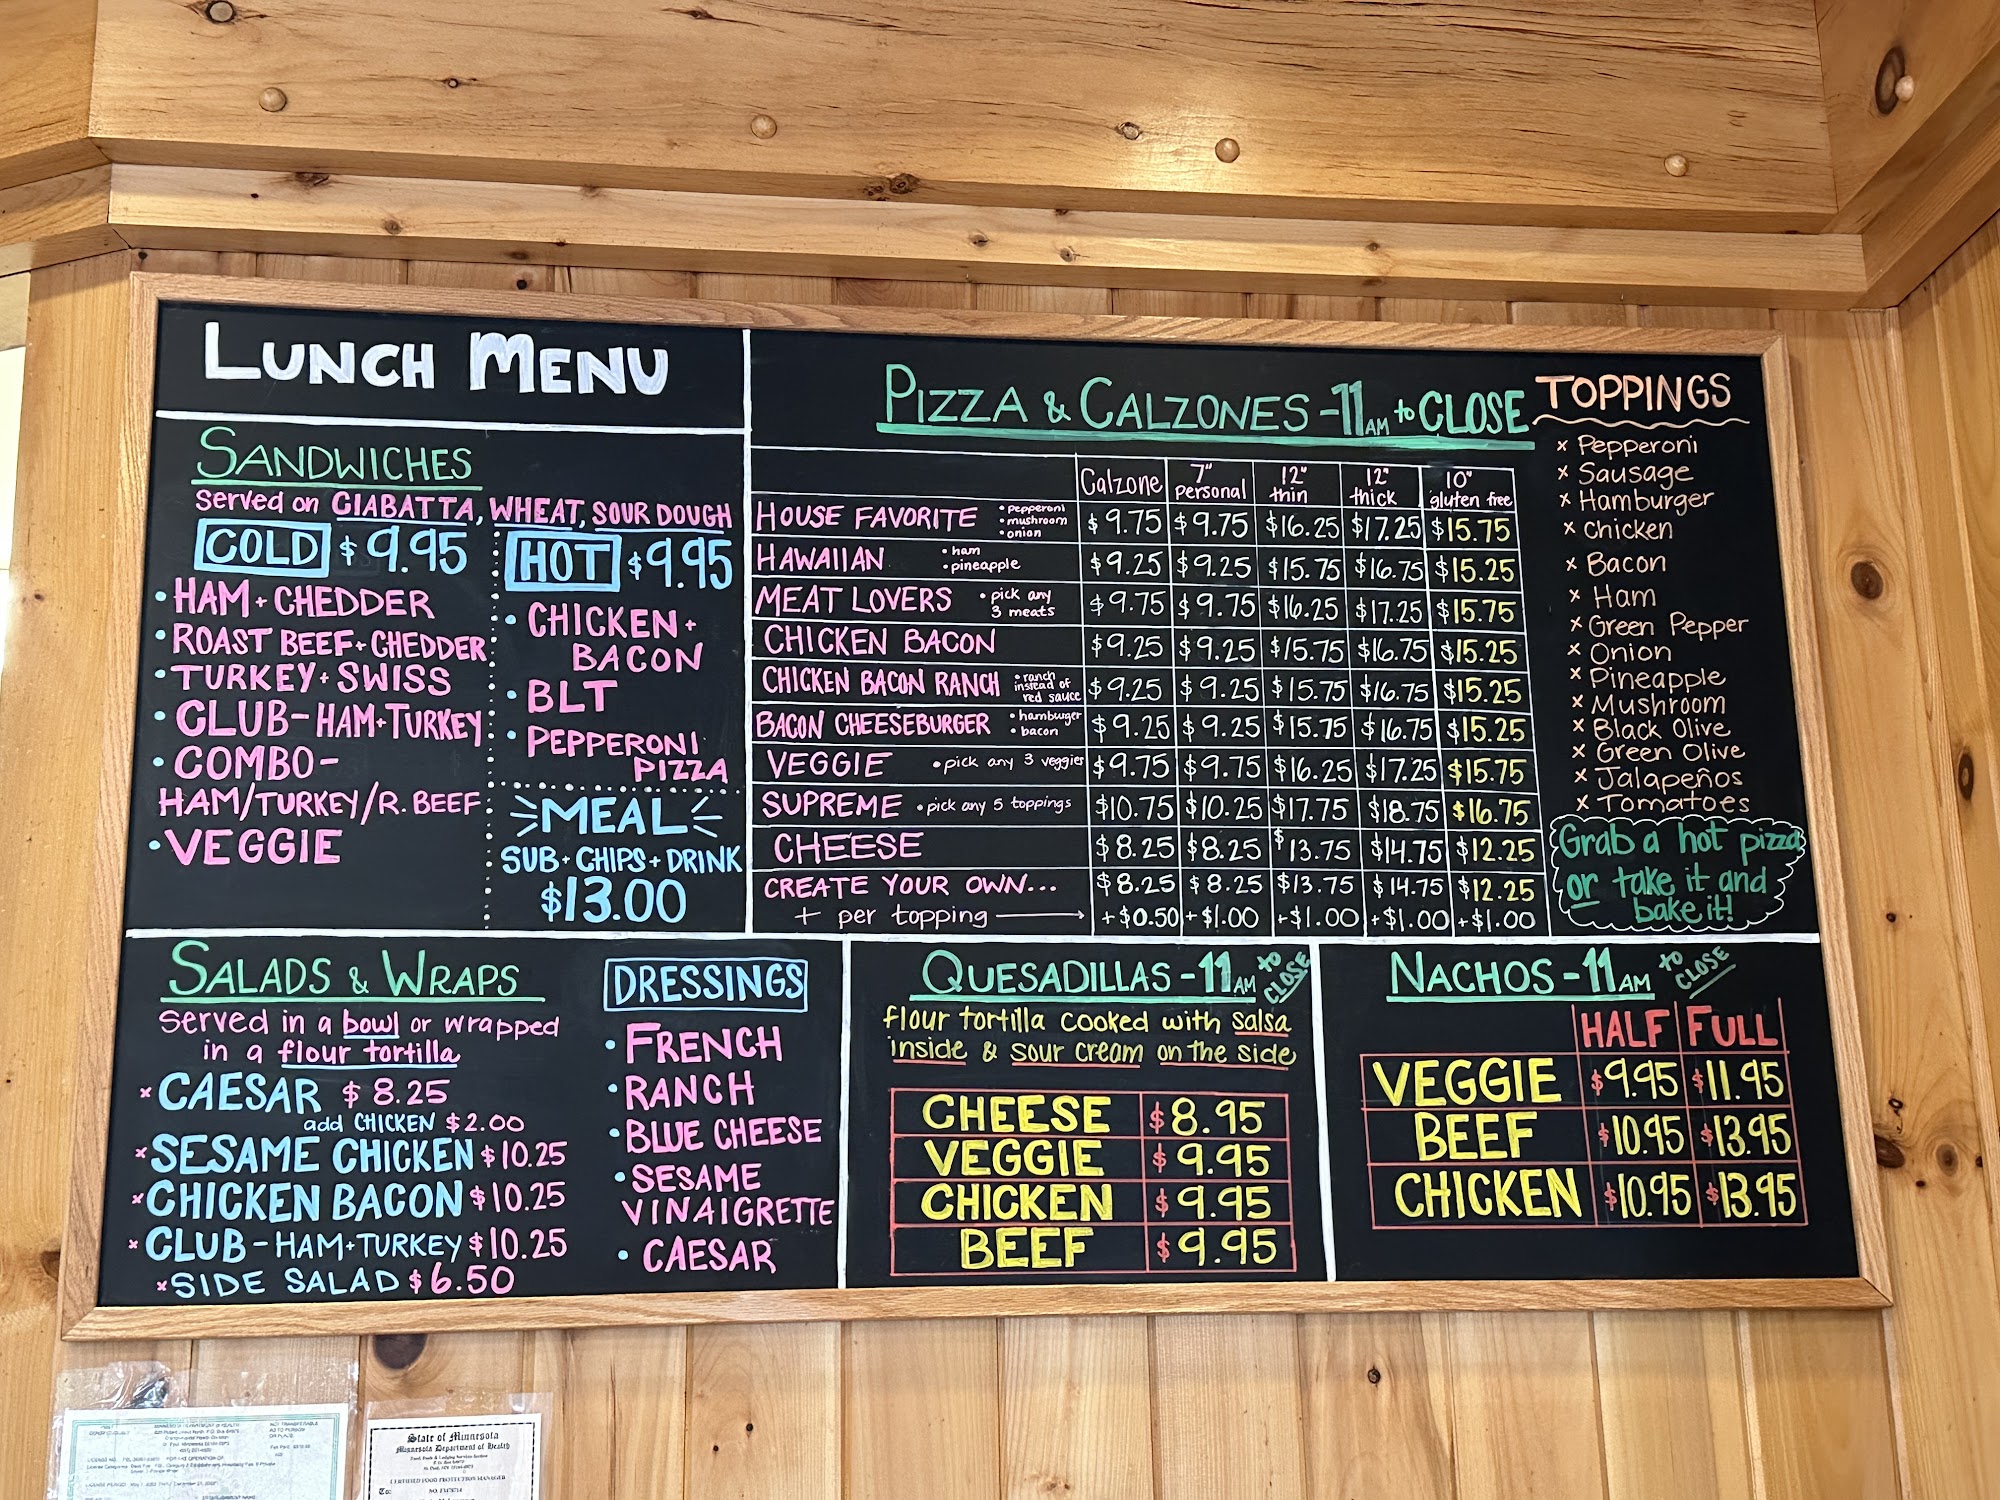 LUNCH MENU
SANDWICHES
served on CIABATTA, WHEAT, SOUR DOUGH
COLD $9.95
• HAM + CHEDDER
• ROAST BEEF + CHEDDER
• TURKEY + SWISS
• CLUB - HAM + TURKEY
• COMBO -
HAM/TURKEY/R. BEEF
• VEGGIE
HOT $9.95
• CHICKEN +
BACON
• BLT
• PEPPERONI
PIZZA
MEAL
SUB + CHIPS + DRINK
$13.00
PIZZA & CALZONES - 11AM to CLOSE
Calzone 7" personal 12" thin 12" thick 10" gluten free
HOUSE FAVORITE • pepperoni • mushroom • onion $9.75 $9.75 $16.25 $17.25 $15.75
HAWAIIAN • ham • pineapple $9.25 $9.25 $15.75 $16.75 $15.25
MEAT LOVERS • pick any 3 meats $9.75 $9.75 $16.25 $17.25 $15.75
CHICKEN BACON $9.25 $9.25 $15.75 $16.75 $15.25
CHICKEN BACON RANCH • ranch instead of red sauce $9.25 $9.25 $15.75 $16.75 $15.25
BACON CHEESEBURGER • hamburger • bacon $9.25 $9.25 $15.75 $16.75 $15.25
VEGGIE • pick any 3 veggies $9.75 $9.75 $16.25 $17.25 $15.75
SUPREME • pick any 5 toppings $10.75 $10.25 $17.75 $18.75 $16.75
CHEESE $8.25 $8.25 $13.75 $14.75 $12.25
CREATE YOUR OWN... $8.25 $8.25 $13.75 $14.75 $12.25
+ per topping → +$0.50 +$1.00 +$1.00 +$1.00 +$1.00
TOPPINGS
x Pepperoni
x Sausage
x Hamburger
x Chicken
x Bacon
x Ham
x Green Pepper
x Onion
x Pineapple
x Mushroom
x Black Olive
x Green Olive
x Jalapeños
x Tomatoes
Grab a hot pizza
or take it and
bake it!
SALADS & WRAPS
served in a bowl or wrapped
in a flour tortilla
x CAESAR $8.25
add CHICKEN $2.00
x SESAME CHICKEN $10.25
x CHICKEN BACON $10.25
x CLUB - HAM + TURKEY $10.25
x SIDE SALAD $6.50
DRESSINGS
• FRENCH
• RANCH
• BLUE CHEESE
• SESAME
VINAIGRETTE
• CAESAR
QUESADILLAS - 11AM to CLOSE
flour tortilla cooked with salsa
inside & sour cream on the side
CHEESE $8.95
VEGGIE $9.95
CHICKEN $9.95
BEEF $9.95
NACHOS - 11AM to CLOSE
HALF FULL
VEGGIE $9.95 $11.95
BEEF $10.95 $13.95
CHICKEN $10.95 $13.95
State of Minnesota
Minnesota Department of Health
CERTIFIED FOOD PROTECTION MANAGER